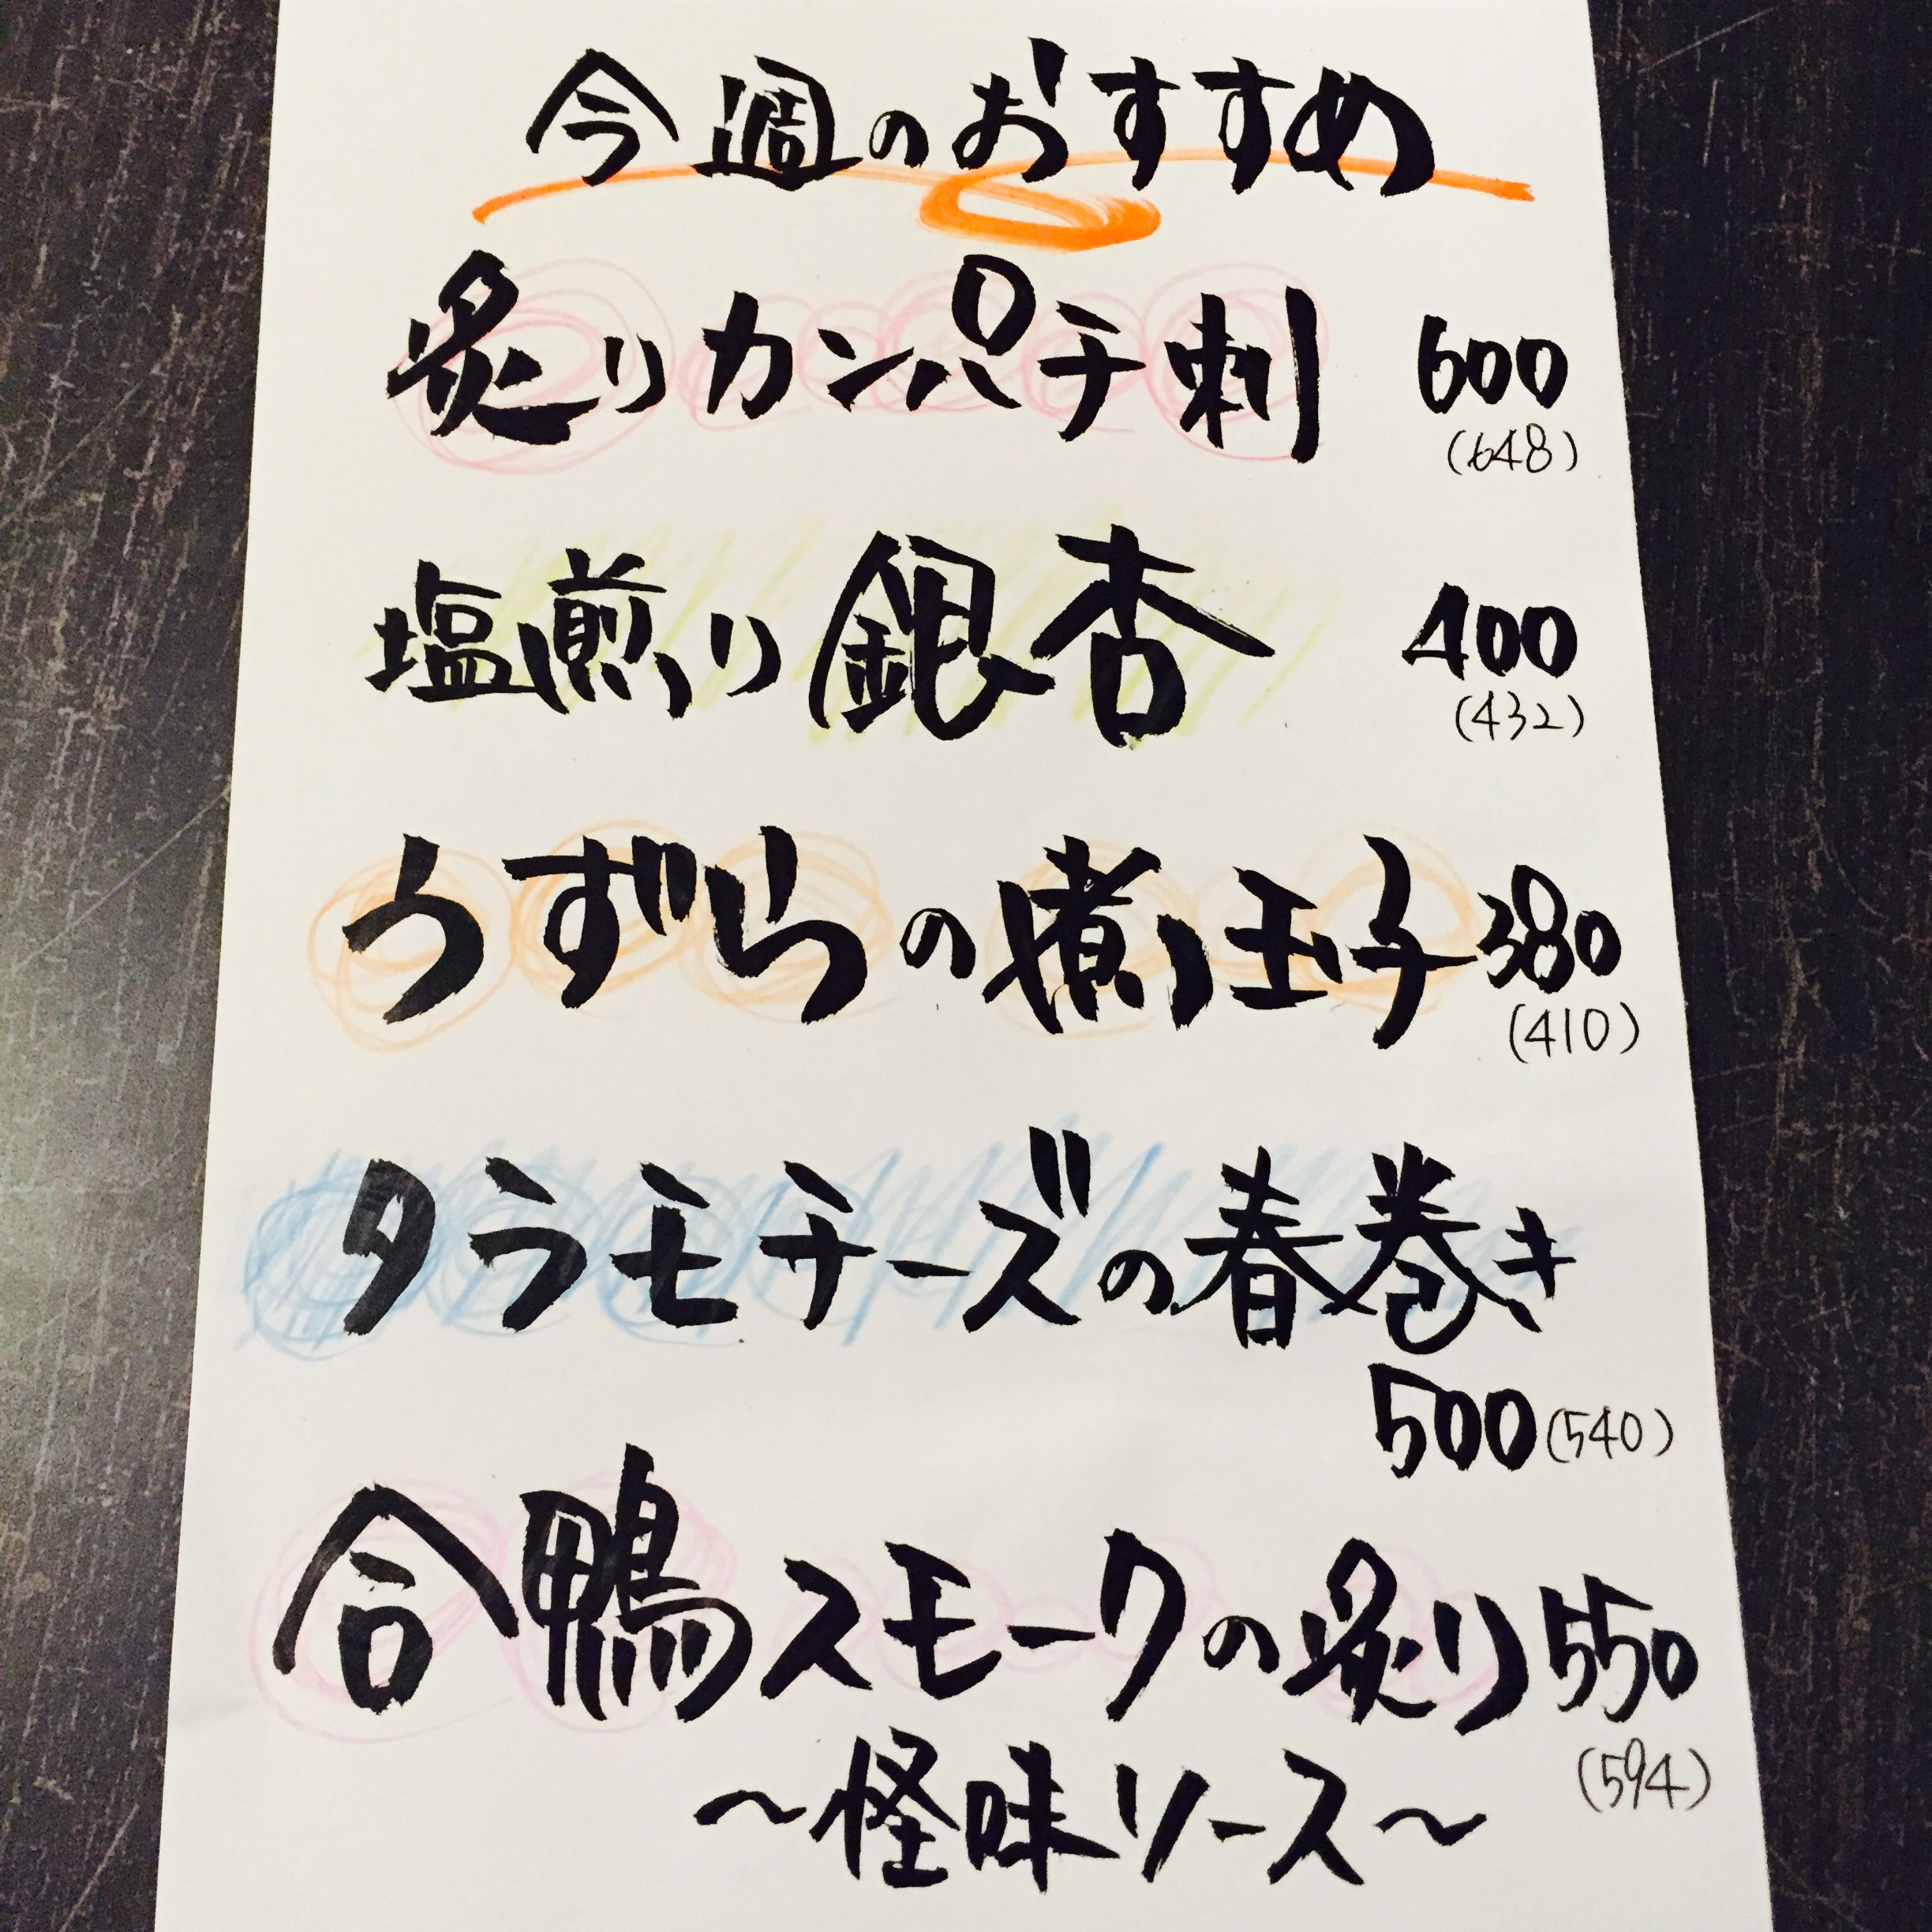 今週のおすすめ
炙りカンパチ刺 600
(648)
塩煎り銀杏 400
(432)
うずらの煮玉子 380
(410)
タラモチーズの春巻き
500(540)
合鴨スモークの炙り 550
(594)
〜怪味ソース〜